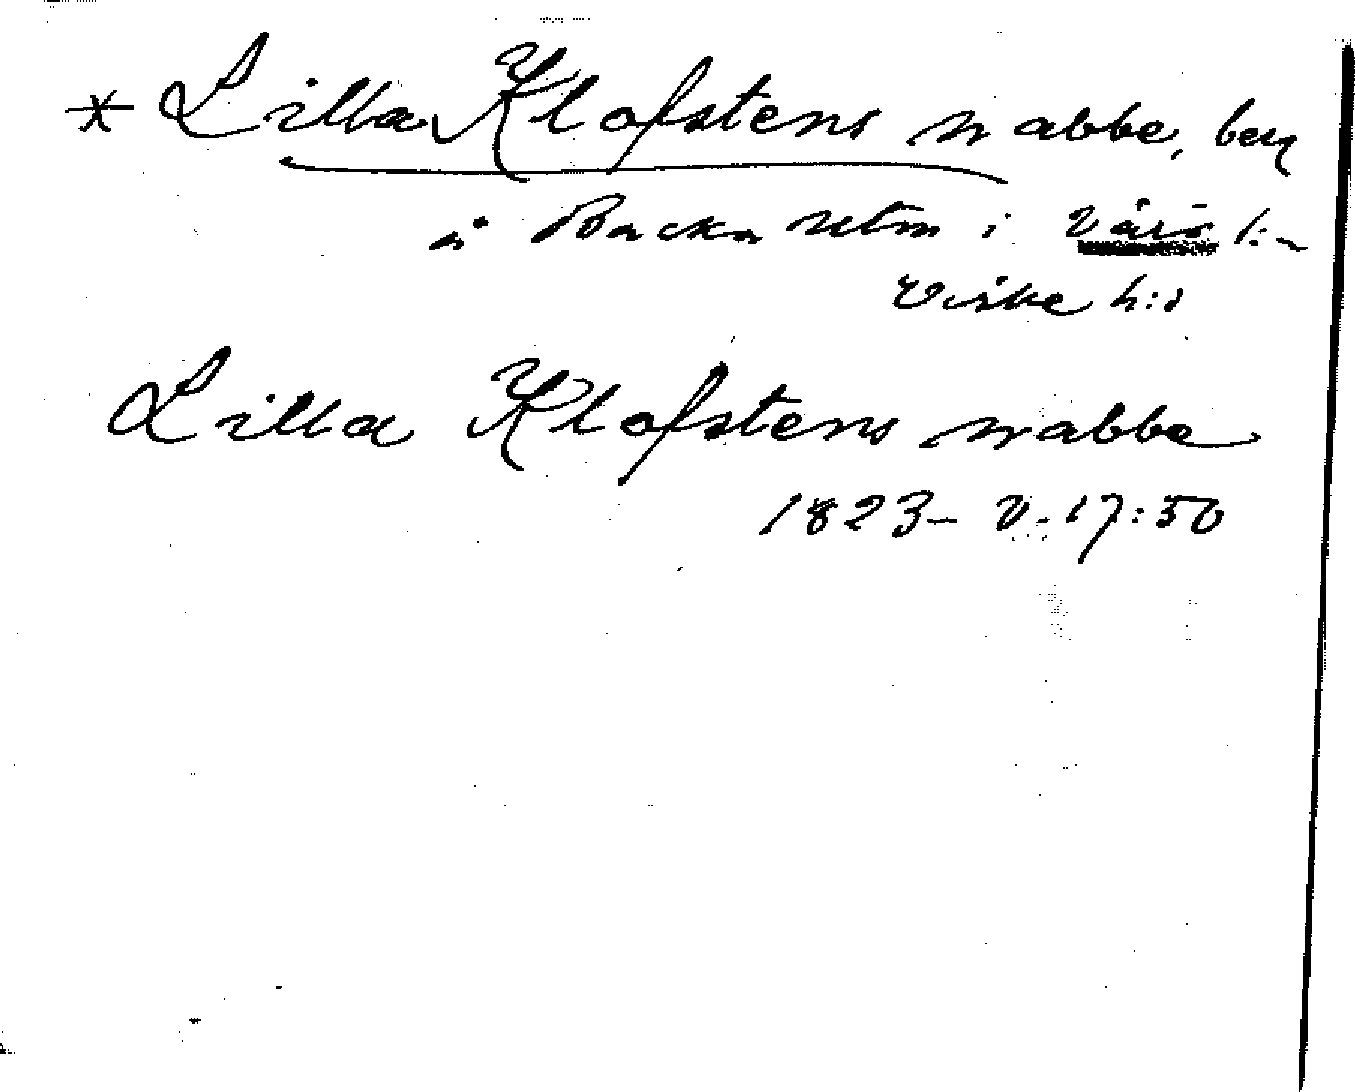 * Lilla Klofstens nabbe, ben
å Backa utm i Värö s:n
Viske h:d
Lilla Klofstens nabbe
1823 - V. 17:50